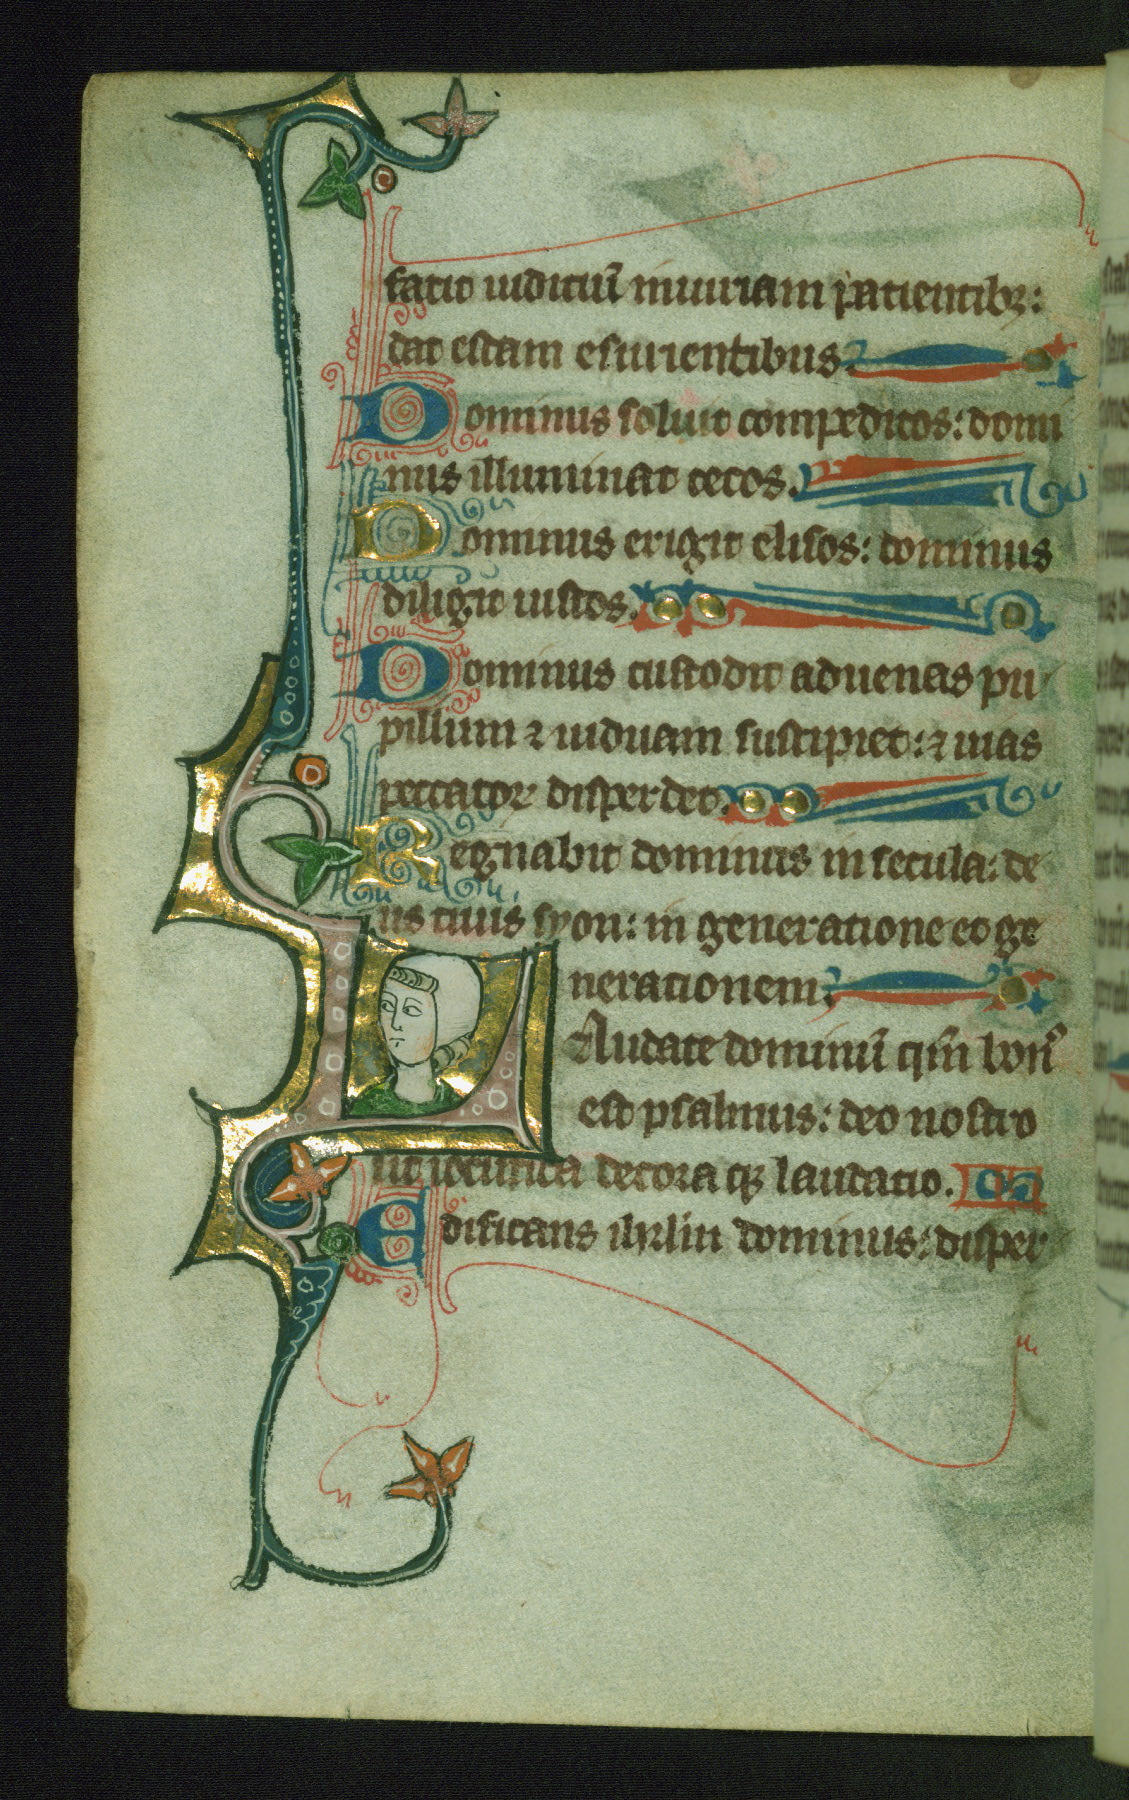 facit iudiciū iniuriam patientibꝫ:
dat escam esurientibus
Dominus soluit compeditos: domi
nus illuminat cecos.
Dominus erigit elisos: dominus
diligit iustos.
Dominus custodit aduenas pu
pillum ⁊ uiduam suscipiet: ⁊ uias
peccatorꝝ disperdet.
Regnabit dominus in secula: de
us tuus syon: in generatione et ge
nerationem.
LAudate dominū qm̄ bon⁹
est psalmus: deo nostro
sit iocunda decora qꝫ laudatio.
Edificans ihrlm dominus: disper